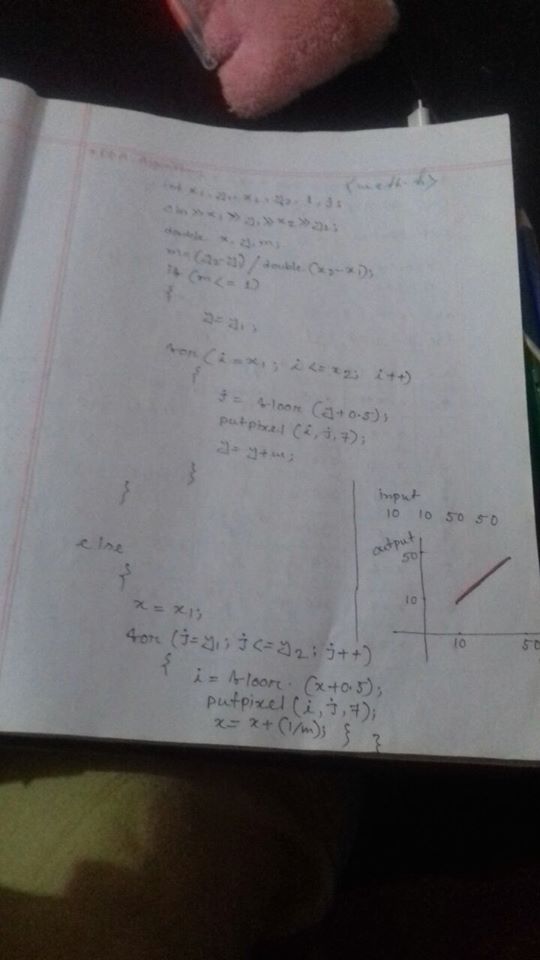 <math.h>
int x1, y1, x2, y2, i, j;
cin >> x1 >> y1 >> x2 >> y2;
double x, y, m;
m = (y2-y1) / double (x2-x1);
if (m <= 1)
{
y = y1;
for (i = x1; i <= x2; i++)
{
j = floor (y+0.5);
putpixel (i, j, 7);
y = y+m;
}
}
else
{
x = x1;
for (j=y1; j<=y2; j++)
{
i = floor (x+0.5);
putpixel (i, j, 7);
x = x+(1/m); } }
input
10 10 50 50
output
50
10
10 50